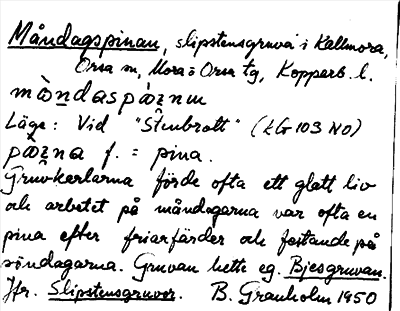 Måndagspinan, slipstensgruva i Kallmora,
Orsa sn, Mora o Orsa tg, Kopparb. l.
Läge: Vid "Stenbrott" (kG 103 NO)
f. = pina.
Gruvkarlarna förde ofta ett glatt liv
och arbetet på måndagarna var ofta en
pina efter friarfärder och festande på
söndagarna. Gruvan hette eg. Bjesgruvan.
Jfr. Slipstensgruvor. B. Granholm 1950